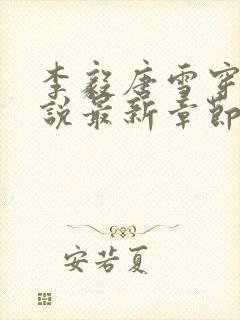 李毅唐雪穿
说最新章节
安若夏